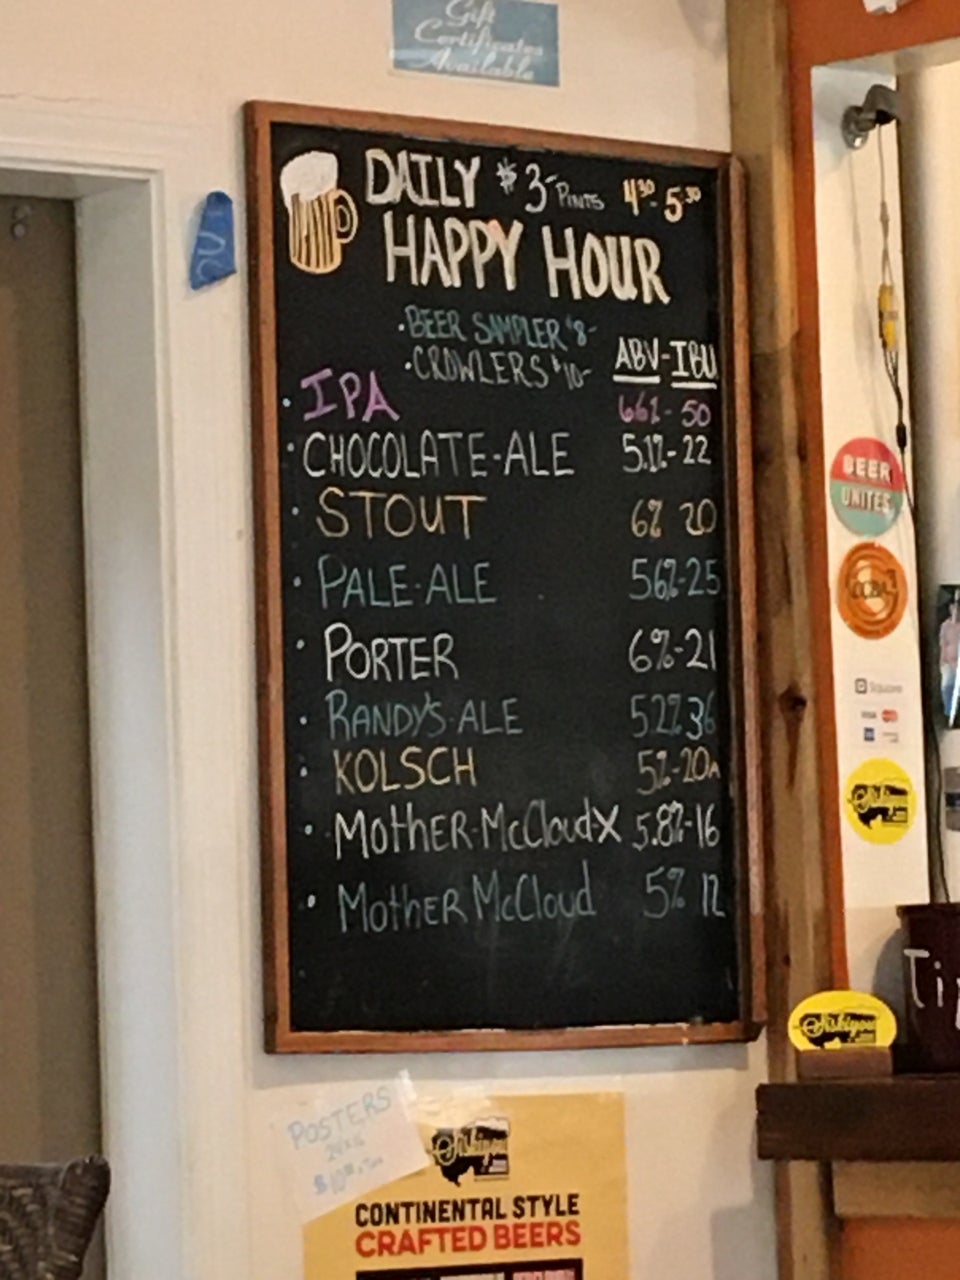 Gift
Certificates
Available
DAILY $3- PINTS 4³⁰-5³⁰
HAPPY HOUR
·BEER SAMPLER $8-
·CROWLERS $10-
ABV-IBU
·IPA 66%-50
·CHOCOLATE-ALE 5.1%-22
·STOUT 6% 20
·PALE-ALE 56%-25
·PORTER 6%-21
·RANDY'S-ALE 52% 36
·KOLSCH 5%-20
·MOTHER-McClOUd-X 5.8%-16
·MOTHER McClOUd 5% 12
BEER
UNITES
CCBA
Square
VISA
Siskiyou
Siskiyou
POSTERS
Siskiyou
CONTINENTAL STYLE
CRAFTED BEERS